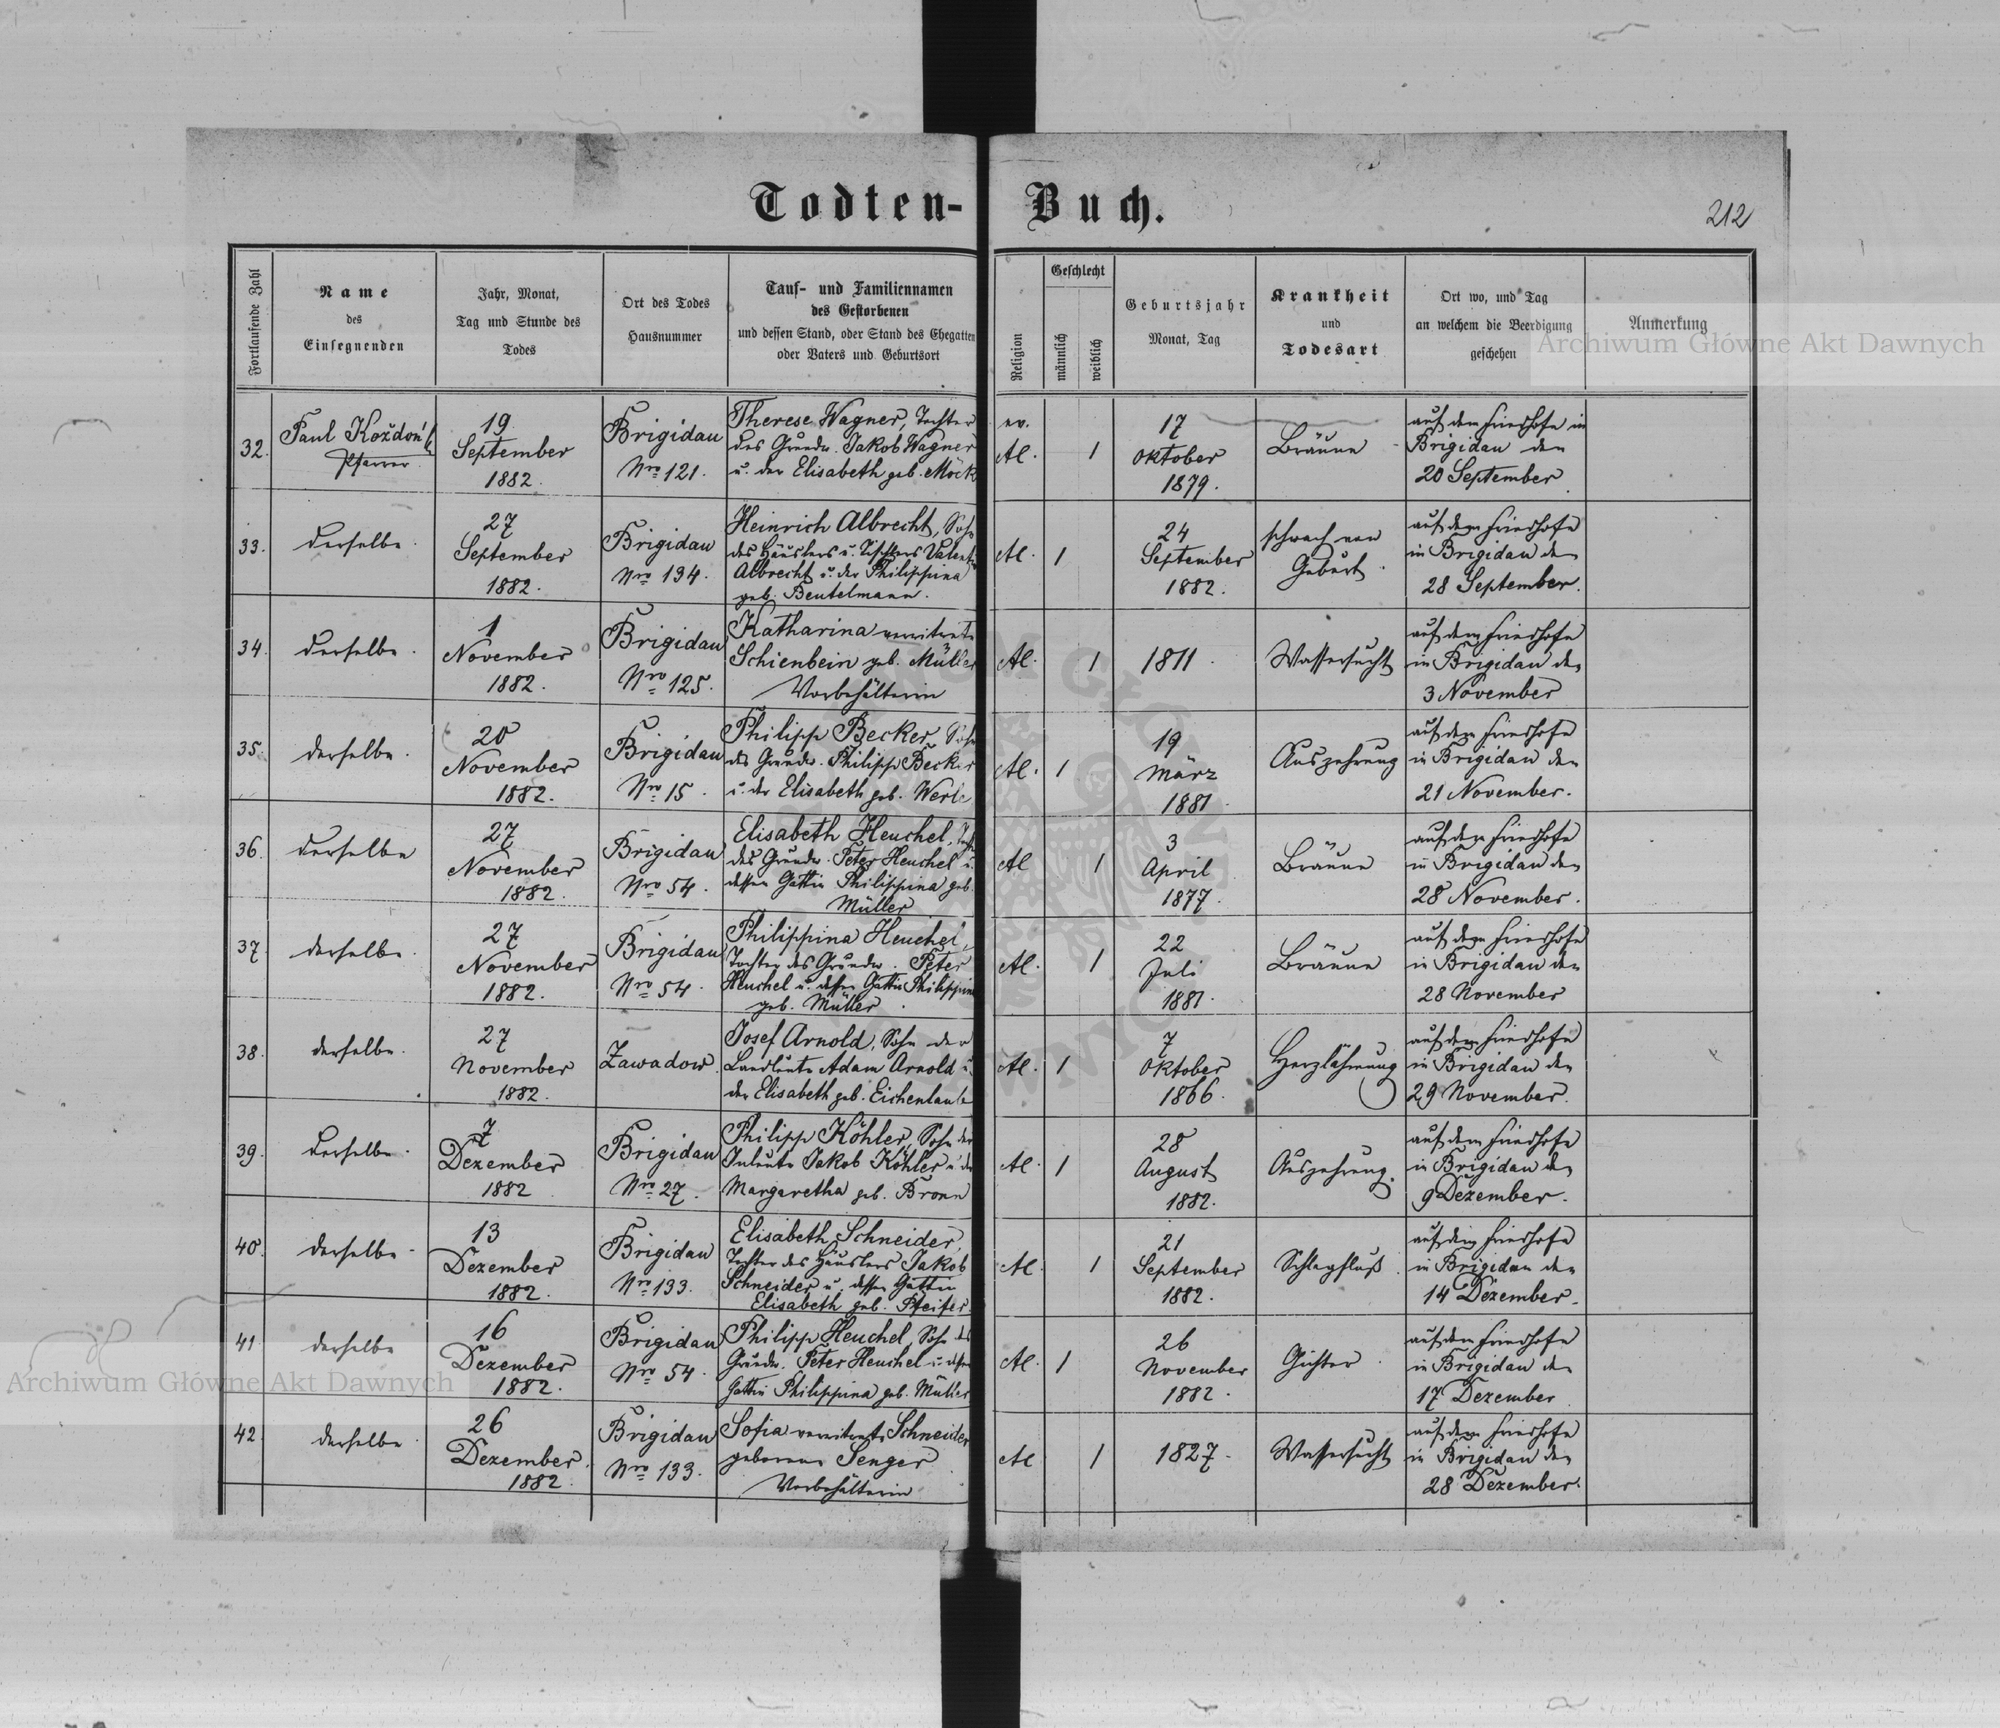 Todten-Buch.
212
Fortlaufende Zahl
Name
des
Einsegnenden
Jahr, Monat,
Tag und Stunde des
Todes
Ort des Todes
Hausnummer
Tauf- und Familiennamen
des Gestorbenen
und dessen Stand, oder Stand des Ehegatten
oder Vaters und Geburtsort
Religion
Geschlecht
männlich
weiblich
Geburtsjahr
Monat, Tag
Krankheit
und
Todesart
Ort wo, und Tag
an welchem die Beerdigung
geschehen
Anmerkung
Archiwum Główne Akt Dawnych
32.
Paul Koždoń
Pfarrer
19
September
1882.
Brigidau
Nro 121.
Therese Wagner, Tochter
des Grundw. Jakob Wagner
u. der Elisabeth geb. Möck
ev.
Al.
1
17
Oktober
1879.
Bräune
auf dem Friedhofe in
Brigidau den
20 September
33.
derselbe.
27
September
1882.
Brigidau
Nro 134.
Heinrich Albrecht, Sohn
des Häuslers u. Tischlers Valentin
Albrecht u. der Philippina
geb. Beutelmann.
Al.
1
24
September
1882.
schwach von
Geburt.
auf dem Friedhofe
in Brigidau den
28 September.
34.
derselbe.
1
November
1882.
Brigidau
Nro 125.
Katharina verwitwete
Schienbein geb. Müller
Vorbehälterin
Al.
1
1811.
Wassersucht
auf dem Friedhofe
in Brigidau den
3 November
35.
derselbe.
20
November
1882.
Brigidau
Nro 15.
Philipp Becker, Sohn
des Grundw. Philipp Becker
u. der Elisabeth geb. Werle
Al.
1
19
März
1881.
Auszehrung
auf dem Friedhofe
in Brigidau den
21 November.
36.
derselbe
27
November
1882.
Brigidau
Nro 54.
Elisabeth Heuchel, Tochter
des Grundw. Peter Heuchel u.
dessen Gattin Philippina geb.
Müller
Al
1
3
April
1877.
Bräune
auf dem Friedhofe
in Brigidau den
28 November.
37.
derselbe.
27
November
1882.
Brigidau
Nro 54.
Philippina Heuchel,
Tochter des Grundw. Peter
Heuchel u. dessen Gattin Philippina
geb. Müller
Al.
1
22
Juli
1881.
Bräune
auf dem Friedhofe
in Brigidau den
28 November
38.
derselbe.
27
November
1882.
Zawadow.
Josef Arnold, Sohn der
Landleute Adam Arnold u.
der Elisabeth geb. Eichenlaub
Al.
1
7
Oktober
1866.
Herzlähmung
auf dem Friedhofe
in Brigidau den
29 November.
39.
derselbe.
7
Dezember
1882
Brigidau
Nro 27.
Philipp Köhler, Sohn der
Inleute Jakob Köhler u. der
Margaretha geb. Bronn
Al.
1
28
August
1882.
Auszehrung.
auf dem Friedhofe
in Brigidau den
9 Dezember.
40.
derselbe.
13
Dezember
1882.
Brigidau
Nro 133.
Elisabeth Schneider,
Tochter des Häuslers Jakob
Schneider u. dessen Gattin
Elisabeth geb. Pfeifer.
Al.
1
21
September
1882.
Schlagfluß.
auf dem Friedhofe
in Brigidau den
14 Dezember.
41
derselbe
16
Dezember
1882.
Brigidau
Nro 54.
Philipp Heuchel, Sohn des
Grundw. Peter Heuchel u. dessen
Gattin Philippina geb. Müller
Al.
1
26
November
1882.
Gichter.
auf dem Friedhofe
in Brigidau den
17 Dezember
42.
derselbe
26
Dezember.
1882.
Brigidau
Nro 133.
Sofia verwitwete Schneider
geborene Senger
Vorbehälterin
Al
1
1827.
Wassersucht
auf dem Friedhofe
in Brigidau den
28 Dezember.
Archiwum Główne Akt Dawnych